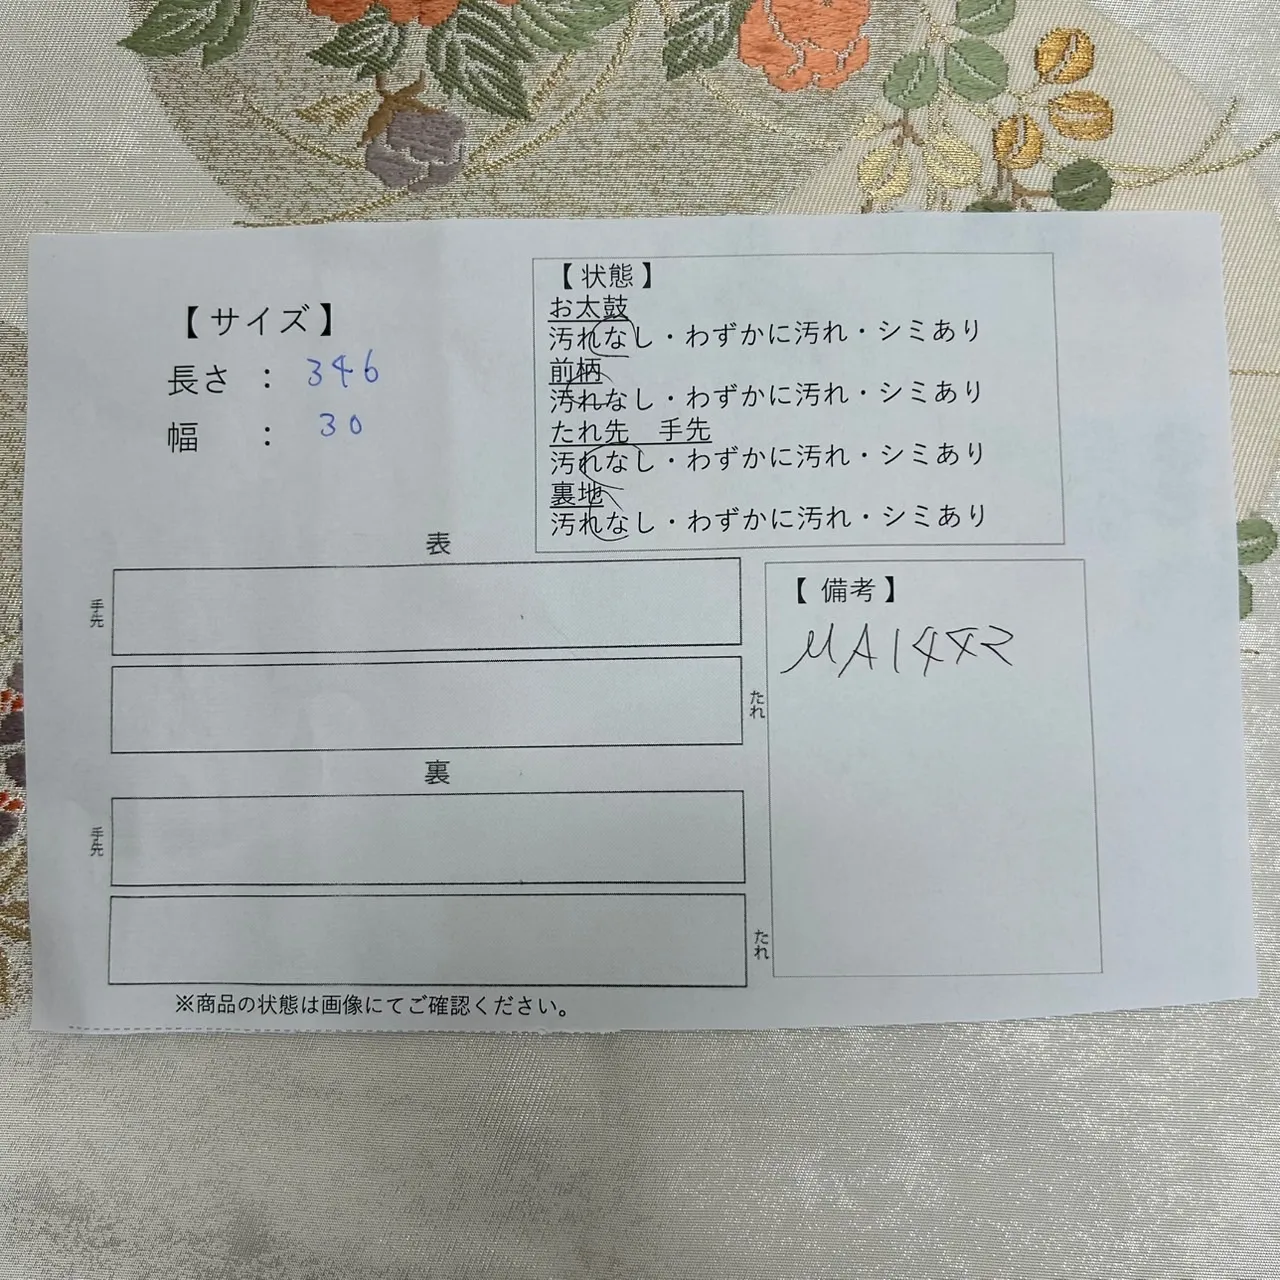 【サイズ】
長さ ： 346
幅 ： 30
【状態】
お太鼓
汚れなし・わずかに汚れ・シミあり
前柄
汚れなし・わずかに汚れ・シミあり
たれ先 手先
汚れなし・わずかに汚れ・シミあり
裏地
汚れなし・わずかに汚れ・シミあり
表
手先
たれ
裏
手先
たれ
※商品の状態は画像にてご確認ください。
【備考】
MA1442